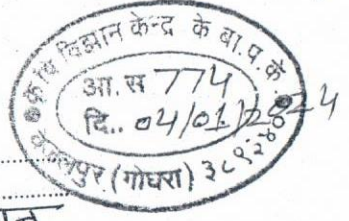 कृषि विज्ञान केन्द्र के बा.प.के.
आ. स 774
दि.. 04/01/2024
वेजलपुर (गोधरा) ३८९३४०